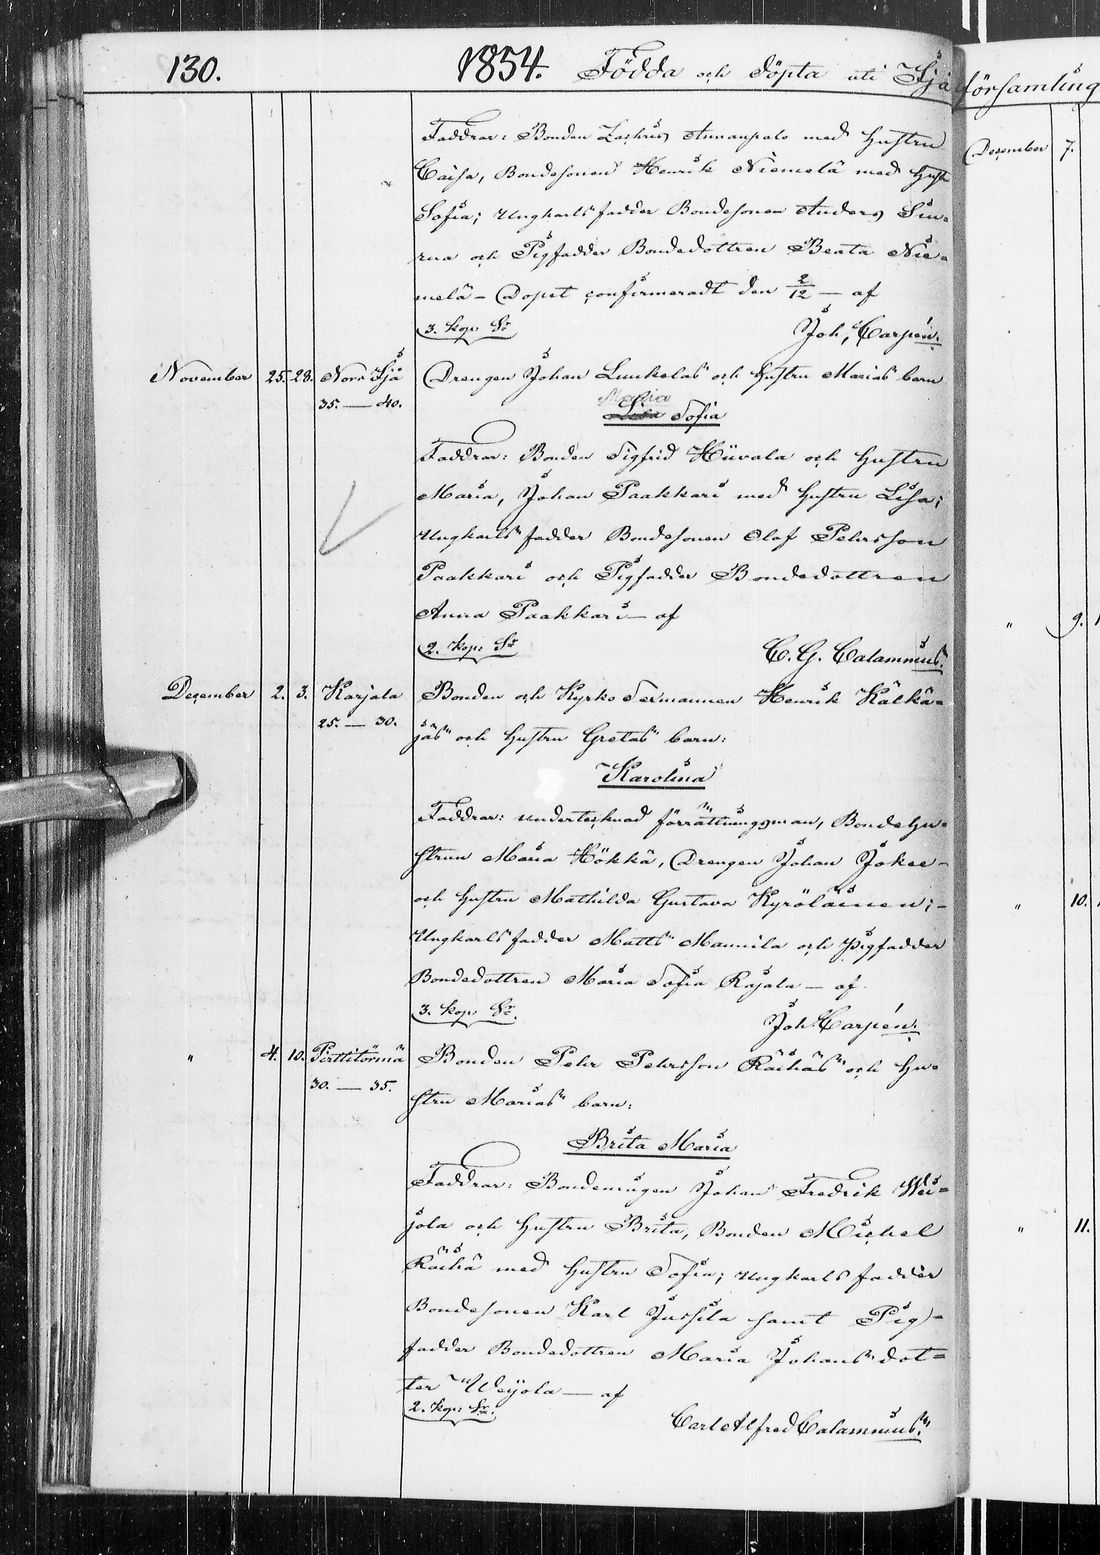 130.
1854. Födda och Döpta uti Ijo församling
Faddrar: Bonden Zachris Annanpalo med hustru
Caisa, Bondesonen Henrik Niemelä med hust
Sofia; Ungkarlsfadder Bondesonen Anders
och Pigfadder Bondedottren Beata Nie=
melä – Dopet confirmeradt den 2/12 — af
3. kop: Sr
Joh, Carpén.
November 25. 28. Norr Ijå
Drengen Johan Lunkelas och hustru Marias barn
35. — 40.
Maria
Sofia
Faddrar: Bonden Sigfrid Hiivala och hustru
Maria, Johan Paakkari med hustru Lisa;
Ungkarlsfadder Bondesonen Olof Pehrsson
Paakkari och Pigfadder Bondedottren
Anna Paakkari — af
2. kop: Sr
C. G. Calamnius.
December 2. 3. Karjala
Bonden och Kyrko Sexmannen Henrik Kälkä=
25. — 30.
jäs och hustru Gretas barn:
Karolina
Faddrar: undertecknad förrättningsman, Bondehu=
strun Maria Hökkä, Drengen Johan Jokee
och hustru Mathilda Gustava Kyröläinen; –
Ungkarlsfadder Matts Mannila och Pigfadder
Bondedottren Maria Sofia Rajala — af
3. kop: Sr.
Joh. Carpén.
" 4. 10. Pirttitörmä
Bonden Pehr Pehrsson Räihäs och hu=
30. — 35.
stru Marias barn:
Brita Maria
Faddrar: Bondemågen Johan Fredrik Wei=
jola och hustru Brita, Bonden Michel
Räihä med hustru Sofia; Ungkarlsfadder
Bondesonen Karl Jussila samt Pig=
fadder Bondedottren Maria Johans dot=
ter Weijola — af
2. kop: Sr.
Carl Alfred Calamnius.
December 7.
" 9.
" 10.
" 11.